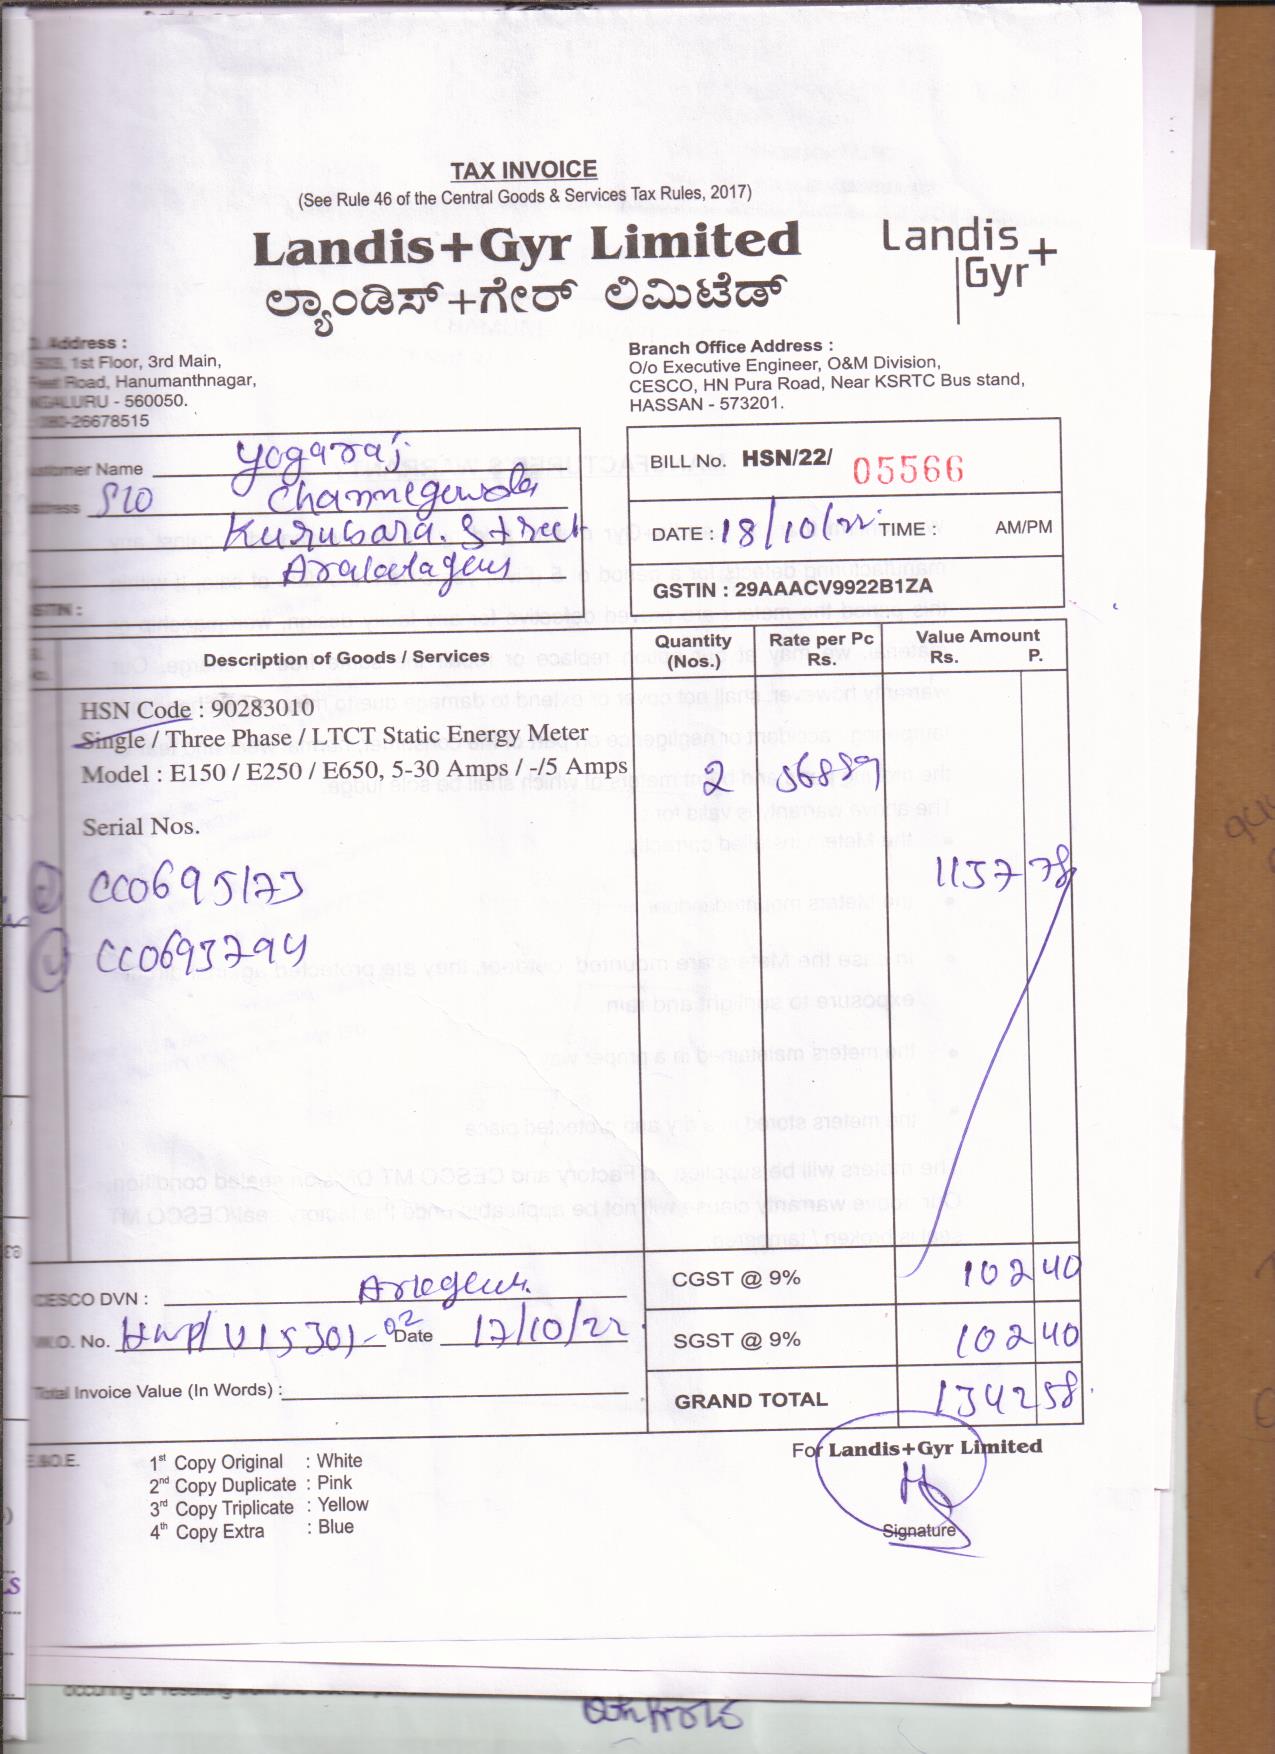 TAX INVOICE
(See Rule 46 of the Central Goods & Services Tax Rules, 2017)
Landis+Gyr Limited
ಲ್ಯಾಂಡಿಸ್+ಗೇರ್ ಲಿಮಿಟೆಡ್
Landis
Gyr+
Address :
1st Floor, 3rd Main,
Road, Hanumanthnagar,
- 560050.
-26678515
Branch Office Address :
O/o Executive Engineer, O&M Division,
CESCO, HN Pura Road, Near KSRTC Bus stand,
HASSAN - 573201.
Customer Name Yogaraj
Address S/O Channegowda
Kurubara. Street
BILL No. HSN/22/ 05566
DATE : 18/10/22 TIME : AM/PM
GSTIN : 29AAACV9922B1ZA
GSTIN :
Description of Goods / Services
Quantity (Nos.)
Rate per Pc Rs.
Value Amount Rs. P.
HSN Code : 90283010
Single / Three Phase / LTCT Static Energy Meter
Model : E150 / E250 / E650, 5-30 Amps / -/5 Amps
2 56889
Serial Nos.
1137 78
CC0695173
CC0693794
CESCO DVN :
CGST @ 9% 102 40
W.O. No. Date 17/10/22
SGST @ 9% 102 40
Total Invoice Value (In Words) :
GRAND TOTAL 1342 58
E.&O.E.
1st Copy Original : White
2nd Copy Duplicate : Pink
3rd Copy Triplicate : Yellow
4th Copy Extra : Blue
For Landis+Gyr Limited
Signature